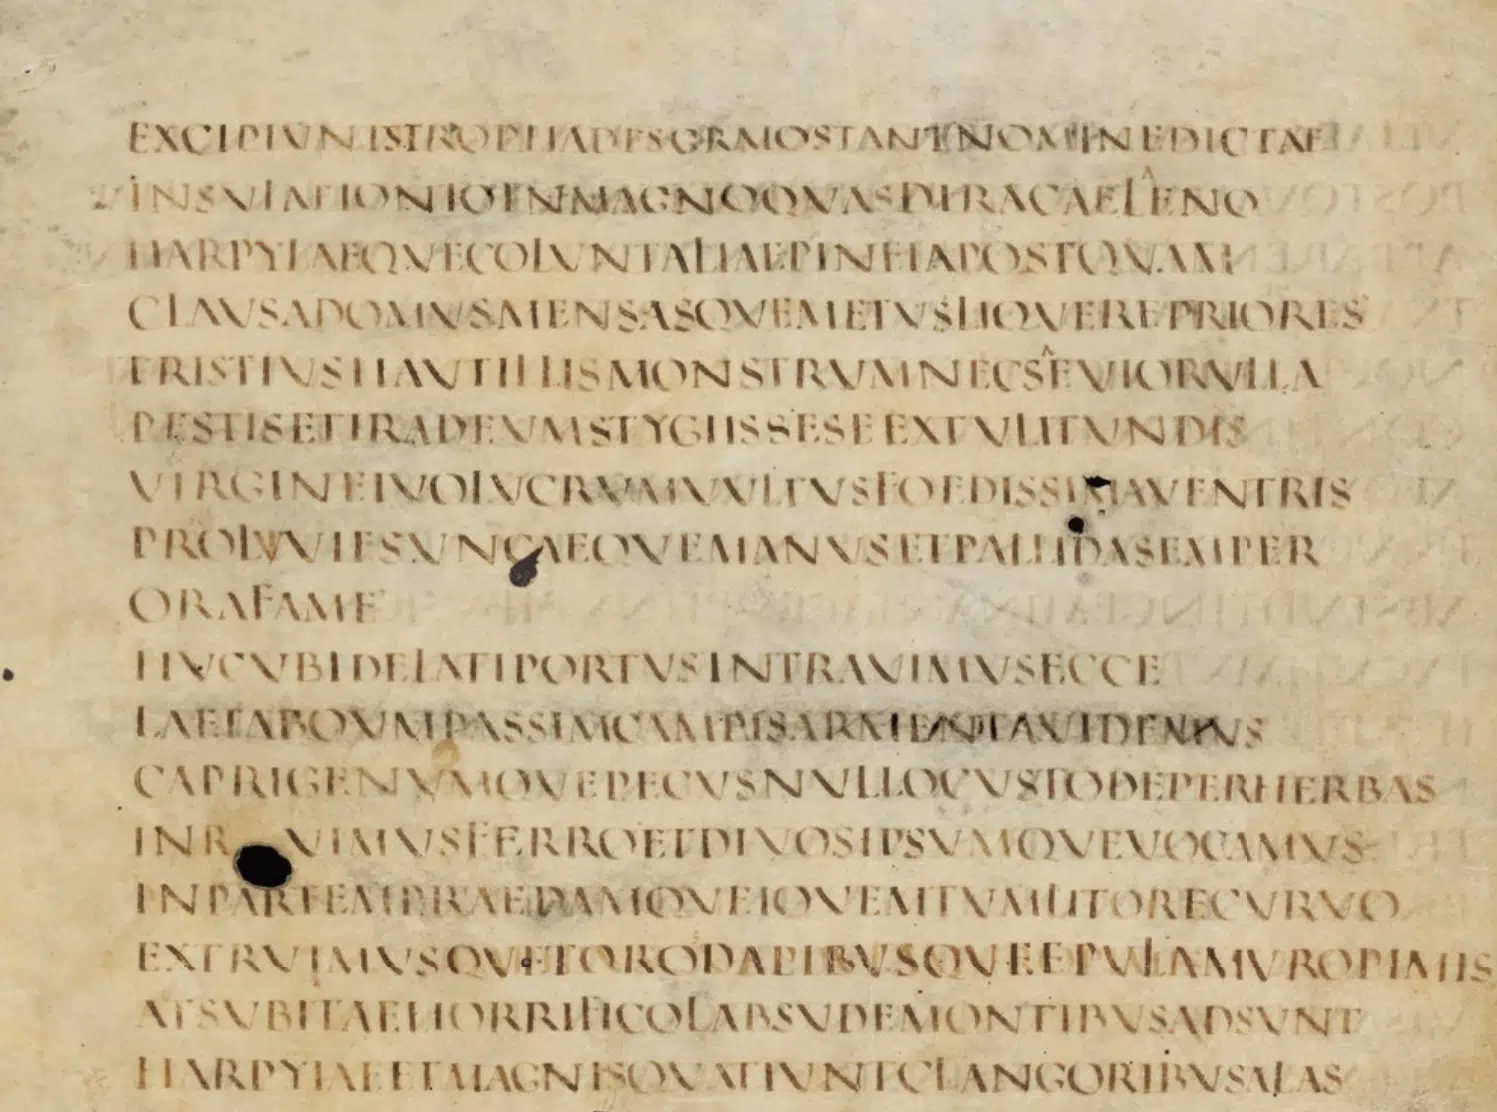 EXCIPIVNTSTROPHADESGRAIOSTANTNOMINEDICTAE
INSVLAEIONIOINMAGNOQVASDIRACAELENO
HARPYIAEQVECOLVNTALIAEPINEIAPOSTQVAM
CLAVSADOMVSMENSASQVEMETVSLIQVEREPRIORES
TRISTIVSHAVTILLISMONSTRVMNECSEVIORVLLA
PESTISETIRADEVMSTYGIISSESEEXTVLITVNDIS
VIRGINEIVOLVCRVMVVLTVSFOEDISSIMAVENTRIS
PROLVVIESVNCAEQVEMANVSETPALLIDASEMPER
ORAFAME
HVCVBIDELATIPORTVSINTRAVIMVSECCE
LAETABOVMPASSIMCAMPISARMENTAVIDEMVS
CAPRIGENVMQVEPECVSNVLLOCVSTODEPERHERBAS
INR VIMVSFERROETDIVOSIPSVMQVEVOCAMVS
INPARTEMPRAEDAMQVEIOVEMTVMLITORECVRVO
EXTRVIMVSQVETORODAPIBVSQVEEPVLAMVROPIMIS
ATSVBITAEHORRIFICOLABSVDEMONTIBVSADSVNT
HARPYIAEETMAGNISQVATIVNTCLANGORIBVSALAS